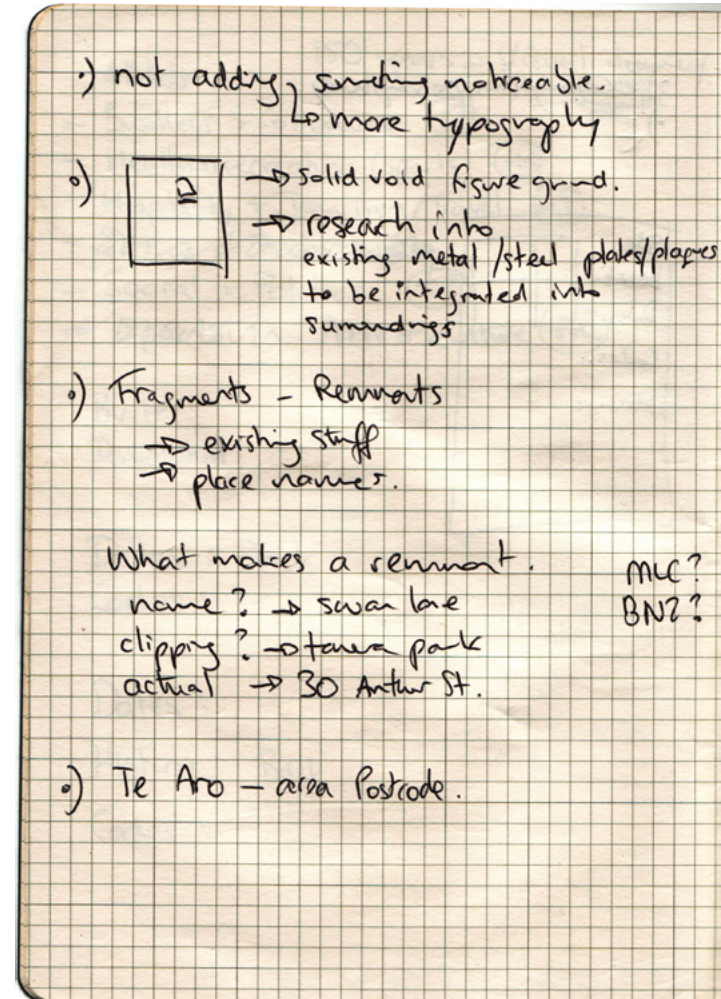 •) not adding something noticeable.
↳ more typography
•) → solid void figure grund.
→ research into
existing metal/steel plates/plaques
to be integrated into
surrundings
•) Fragments - Remnants
→ existing stuff
→ place names.
What makes a remnant.
MLC?
name? → swan lane
BNZ?
clipping? → park
actual → 30 Arthur St.
•) Te Aro — area Postcode.